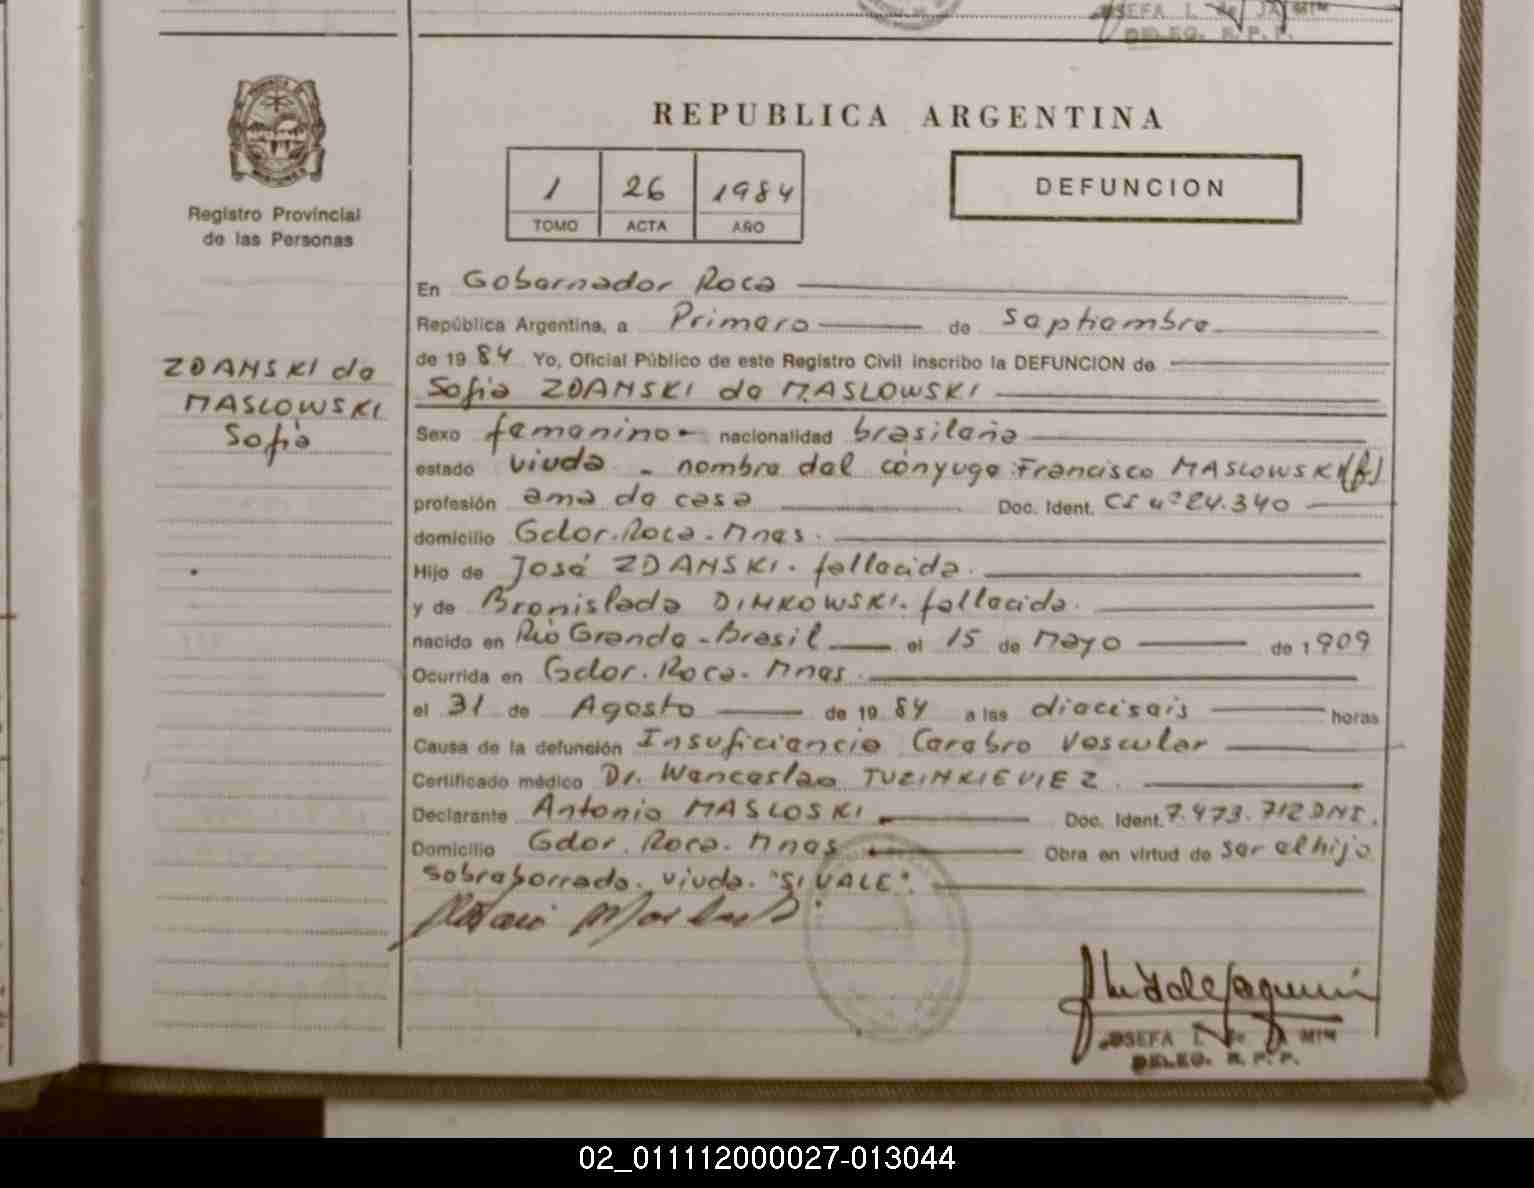 JOSEFA L. de JAQUIMIN
DELEG. R. P. P.
REPUBLICA ARGENTINA
1 26 1984
TOMO ACTA AÑO
DEFUNCION
Registro Provincial
de las Personas
ZDANSKI de
MASLOWSKI
Sofia
En Gobernador Roca
República Argentina, a Primero de septiembre
de 1984 Yo, Oficial Público de este Registro Civil inscribo la DEFUNCION de
Sofia ZDANSKI de MASLOWSKI
Sexo femenino nacionalidad brasileña
estado viuda - nombre del cónyuge: Francisco MASLOWSKI (f)
profesión ama de casa Doc. Ident. CI nº 24.340
domicilio Gdor. Roca - Mnes.
Hijo de José ZDANSKI. fallecido.
y de Bronislada DIMKOWSKI. fallecida.
nacido en Rio Grande - Brasil el 15 de Mayo de 1909
Ocurrida en Gdor. Roca - Mnes.
el 31 de Agosto de 1984 a las dieciseis horas
Causa de la defunción Insuficiencia Cerebro Vascular
Certificado médico Dr. Wenceslao TUZINKIEVIEZ
Declarante Antonio MASLOSKI Doc. Ident. 7.473.712 DNI.
Domicilio Gdor. Roca. Mnes Obra en virtud de ser el hijo
sobreborrado. viuda. "SI VALE".
DELEG. R. P. P.
02_011112000027-013044